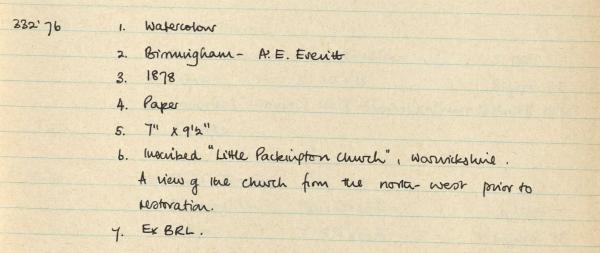 332'76 1. Watercolour
2. Birmingham - A. E. Everitt
3. 1878
4. Paper
5. 7" x 9½"
6. Inscribed "Little Packington Church", Warwickshire.
A view of the church from the north-west prior to
restoration.
7. Ex BRL.